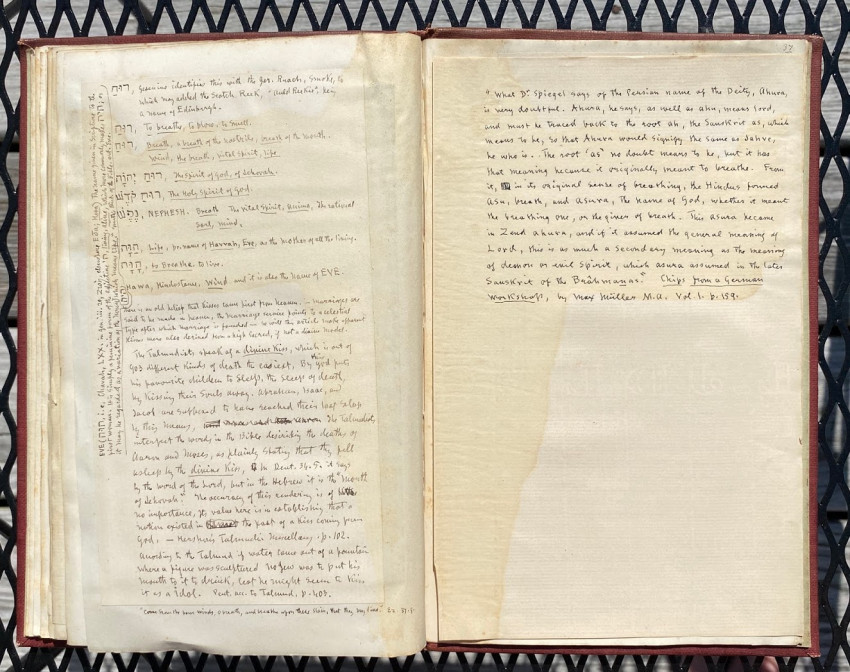 רוּחַ, Gesenius identifies this with the Ger. Rauch, Smoke, to
which may added the Scotch Reek, "Auld Reekie", being
a name of Edinburgh.
רוּחַ, To breathe, to blow, to smell.
רוּחַ, Breath, a breath of the nostrils, breath of the mouth.
Wind, the breath, vital spirit, life.
רוּחַ יְהוָֹה, The Spirit of God, of Jehovah.
רוּחַ קֹדֶשׁ, The Holy Spirit of God.
נֶפֶשׁ, NEPHESH. Breath The vital Spirit, Anima, The rational
soul, mind.
חַוָּה, Life, pr. name of Havvah, Eve, as the mother of all the living.
חָוָה, to Breathe. to live.
Hawa, Hindostanee, Wind and it is also the name of EVE.
There is an old belief that kisses came first from heaven. — marriages are
said to be made in heaven, the marriage service points to a celestial
type after which marriage is
kisses were also derived from a high sacred, if not a divine model.
The Talmudists speak of a divine Kiss, which is out of
903 different kinds of death the easiest. By this God puts
his favourite children to Sleep, the sleep of death,
by Kissing their Souls away. Abraham, Isaac, and
Jacob are supposed to have reached their last sleep
by this means, The Talmudists
interpret the words in the Bible describing the deaths of
Aaron and Moses, as plainly stating that they fell
asleep by the divine Kiss, In Deut. 34. 5. it says
by the word of the Lord, but in the Hebrew it is the "Mouth
of Jehovah". The accuracy of this rendering is of
no importance, its value here is in establishing that a
notion existed in the past of a kiss coming from
God. — Hershon's Talmudic Miscellany. p. 102.
According to the Talmud if water came out of a fountain
where a figure was sculptured no Jew was to put his
mouth to it to drink, lest he might seem to kiss
it as a idol. Pent. acc. to Talmud, p. 403.
"Come from the four winds, O breath, and breathe upon these slain, that they may live." Ez. 37. 9.
37
"What Dr Spiegel says of the Persian name of the Deity, Ahura,
is very doubtful. Ahura, he says, as well as ahu, means lord,
and must be traced back to the root ah, the Sanskrit as, which
means to be, so that Ahura would signify the same as Jahve,
he who is.. The root 'as' no doubt means to be, but it has
that meaning because it originally meant to breathe. From
it, in its original sense of breathing, the Hindus formed
asu, breath, and asura, the name of God, whether it meant
the breathing one, or the giver of breath. This asura became
in Zend ahura, and if it assumed the general meaning of
Lord, this is as much a secondary meaning as the meaning
of demon or evil spirit, which asura assumed in the later
Sanskrit of the Brâhmanas." Chips from a German
Workshop, by Max Müller M.A. Vol 1. p. 159.